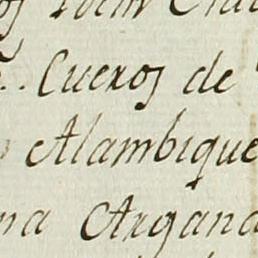 Idem
Cueros de
Alambique
na Argana